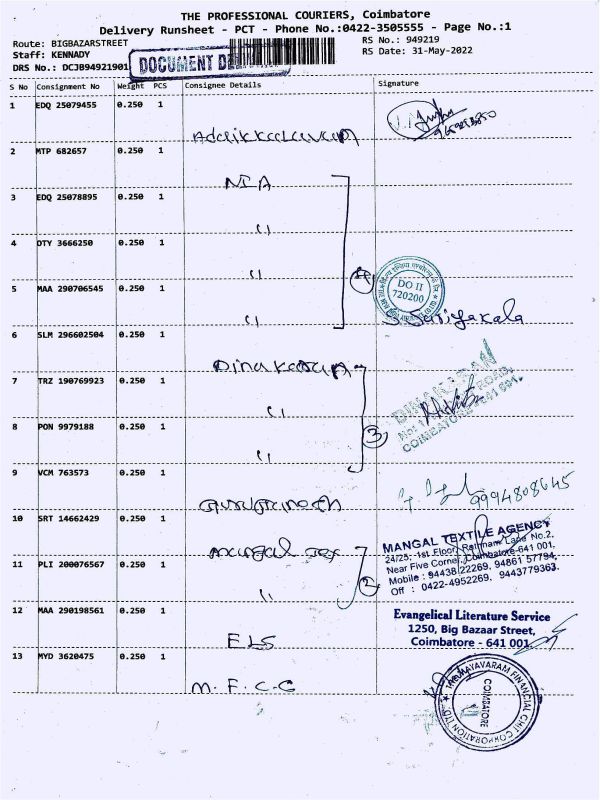 THE PROFESSIONAL COURIERS, Coimbatore
Delivery Runsheet - PCT - Phone No.:0422-3505555 - Page No.:1
Route: BIGBAZARSTREET
RS No.: 949219
Staff: KENNADY
RS Date: 31-May-2022
DRS No.: DCJB94921901
DOCUMENT
S No Consignment No Weight PCS Consignee Details Signature
1 EDQ 25079455 0.250 1
Adaikkalavan
2 MTP 682657 0.250 1
NIA
3 EDQ 25078895 0.250 1
"
4 OTY 3666250 0.250 1
"
4
DO II
720200
5 MAA 290706545 0.250 1
"
S. Suriyakala
6 SLM 296602504 0.250 1
Dinakaran
DINAKARAN
7 TRZ 190769923 0.250 1
"
COIMBATORE-641 001.
8 PON 9979188 0.250 1
"
3
9 VCM 763573 0.250 1
9994808645
10 SRT 14662429 0.250 1
Mangal Tex
MANGAL TEXTILE AGENCY
24/25, 1st Floor, Rathnam Lane No.2,
Near Five Corner, Coimbatore-641 001,
Mobile : 94438 22269, 94861 57794,
Off : 0422-4952269, 9443779363.
11 PLI 200076567 0.250 1
"
2
12 MAA 290198561 0.250 1
ELS
Evangelical Literature Service
1250, Big Bazaar Street,
Coimbatore - 641 001.
13 MYD 3620475 0.250 1
M.F.C.C
MAYAVARAM FINANCIAL CHIT CORPORATION LTD.
COIMBATORE